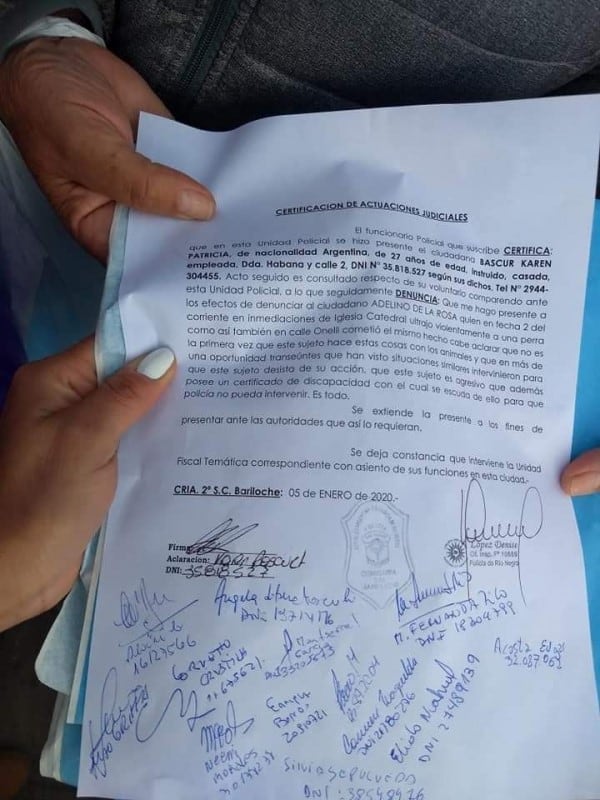 CERTIFICACION DE ACTUACIONES JUDICIALES
El funcionario Policial que suscribe CERTIFICA:
que en esta Unidad Policial se hizo presente el ciudadana BASCUR KAREN
PATRICIA, de nacionalidad Argentina, de 27 años de edad, instruido, casada,
empleada, Dda. Habana y calle 2, DNI N° 35.818.527 según sus dichos, Tel N° 2944-
304455. Acto seguido es consultado respecto de su voluntario comparendo ante
esta Unidad Policial, a lo que seguidamente DENUNCIA: Que me hago presente a
los efectos de denunciar al ciudadano ADELINO DE LA ROSA quien en fecha 2 del
corriente en inmediaciones de Iglesia Catedral ultrajo violentamente a una perra
como así también en calle Onelli cometió el mismo hecho cabe aclarar que no es
la primera vez que este sujeto hace estas cosas con los animales y que en más de
una oportunidad transeúntes que han visto situaciones similares intervinieron para
que este sujeto desista de su acción, que este sujeto es agresivo que además
posee un certificado de discapacidad con el cual se escuda de ello para que
policía no pueda intervenir. Es todo.
Se extiende la presente a los fines de
presentar ante las autoridades que así lo requieran.
Se deja constancia que interviene la Unidad
Fiscal Temática correspondiente con asiento de sus funciones en esta ciudad.-
CRIA. 2° S.C. Bariloche: 05 de ENERO de 2020.-
Firma
Aclaracion:
DNI: 35818527
López Denise
Of. Insp. Pº
Policía de Río Negro
M. FERNANDA
DNI
Acosta
16127566
DNI
Silvia Sepulveda
DNI: 38548926
DNI 27489139